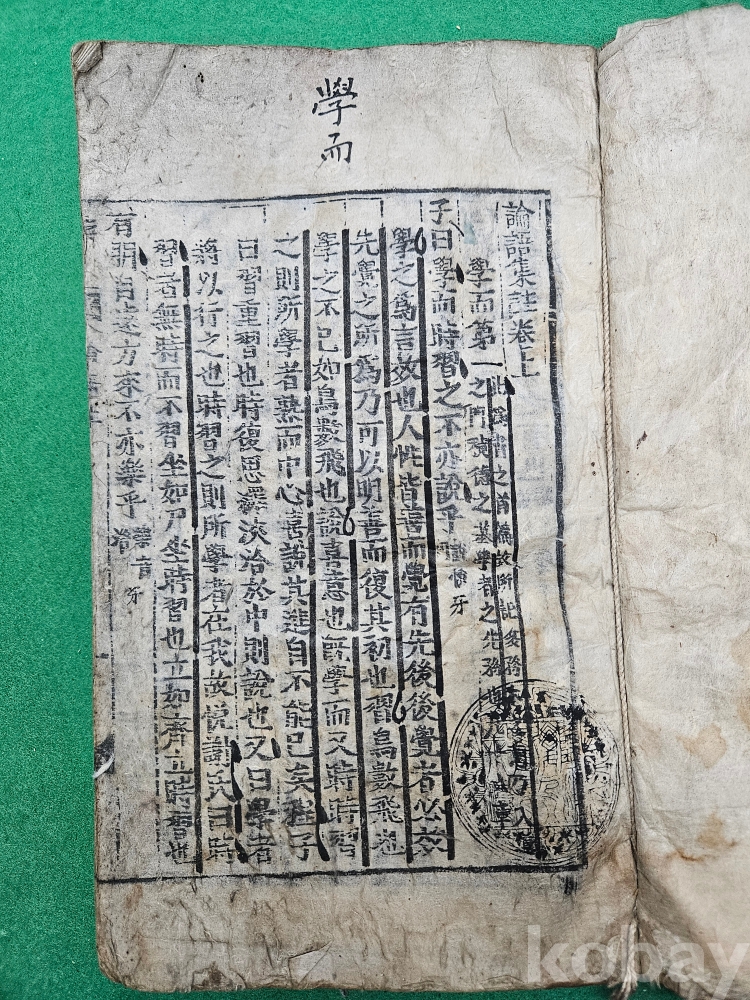 學而
論語集註卷上
學而第一
此爲書之首篇故所記多務
乃入
之門積德之基學者之先務也
章
子曰學而時習之不亦說乎
說悅
學之爲言效也人性皆善而覺有先後後覺者必效
先覺之所爲乃可以明善而復其初也習鳥數飛也
學之不已如鳥數飛也說喜意也旣學而又時時習
之則所學者熟而中心喜說其進自不能已矣程子
曰習重習也時復思繹浹洽於中則說也又曰學者
將以行之也時習之則所學者在我故悅謝氏曰時
習者無時而不習坐如尸坐時習也立如齊立時習也
有朋自遠方來不亦樂乎
樂音
洛
kobay